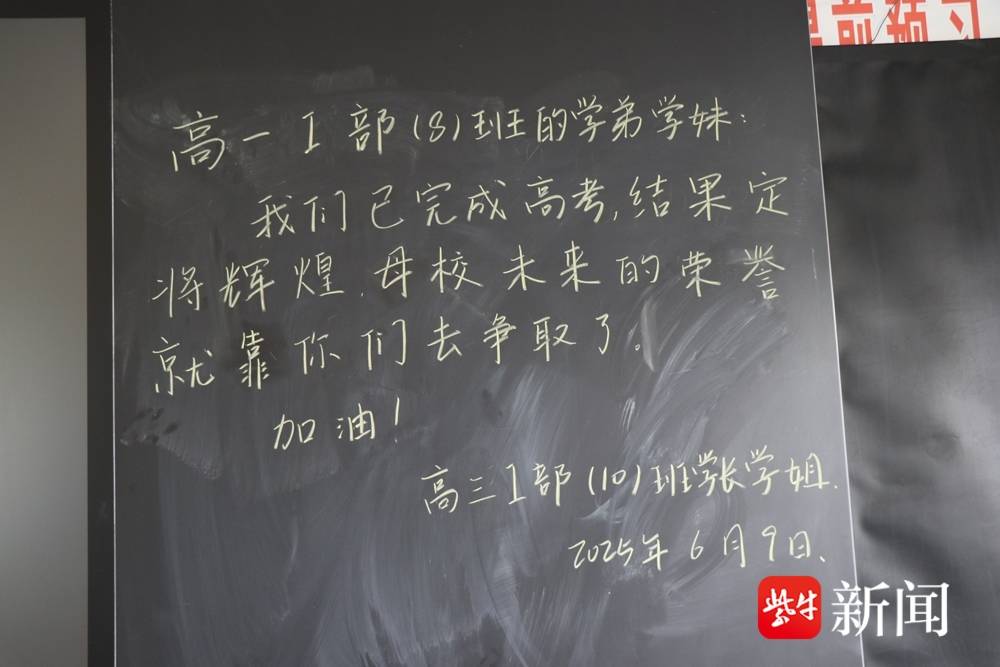 课前预习
高一I部(8)班的学弟学妹:
我们已完成高考,结果定
将辉煌.母校未来的荣誉
就靠你们去争取了。
加油!
高三I部(10)班学长学姐.
2025年6月9日、
紫牛新闻